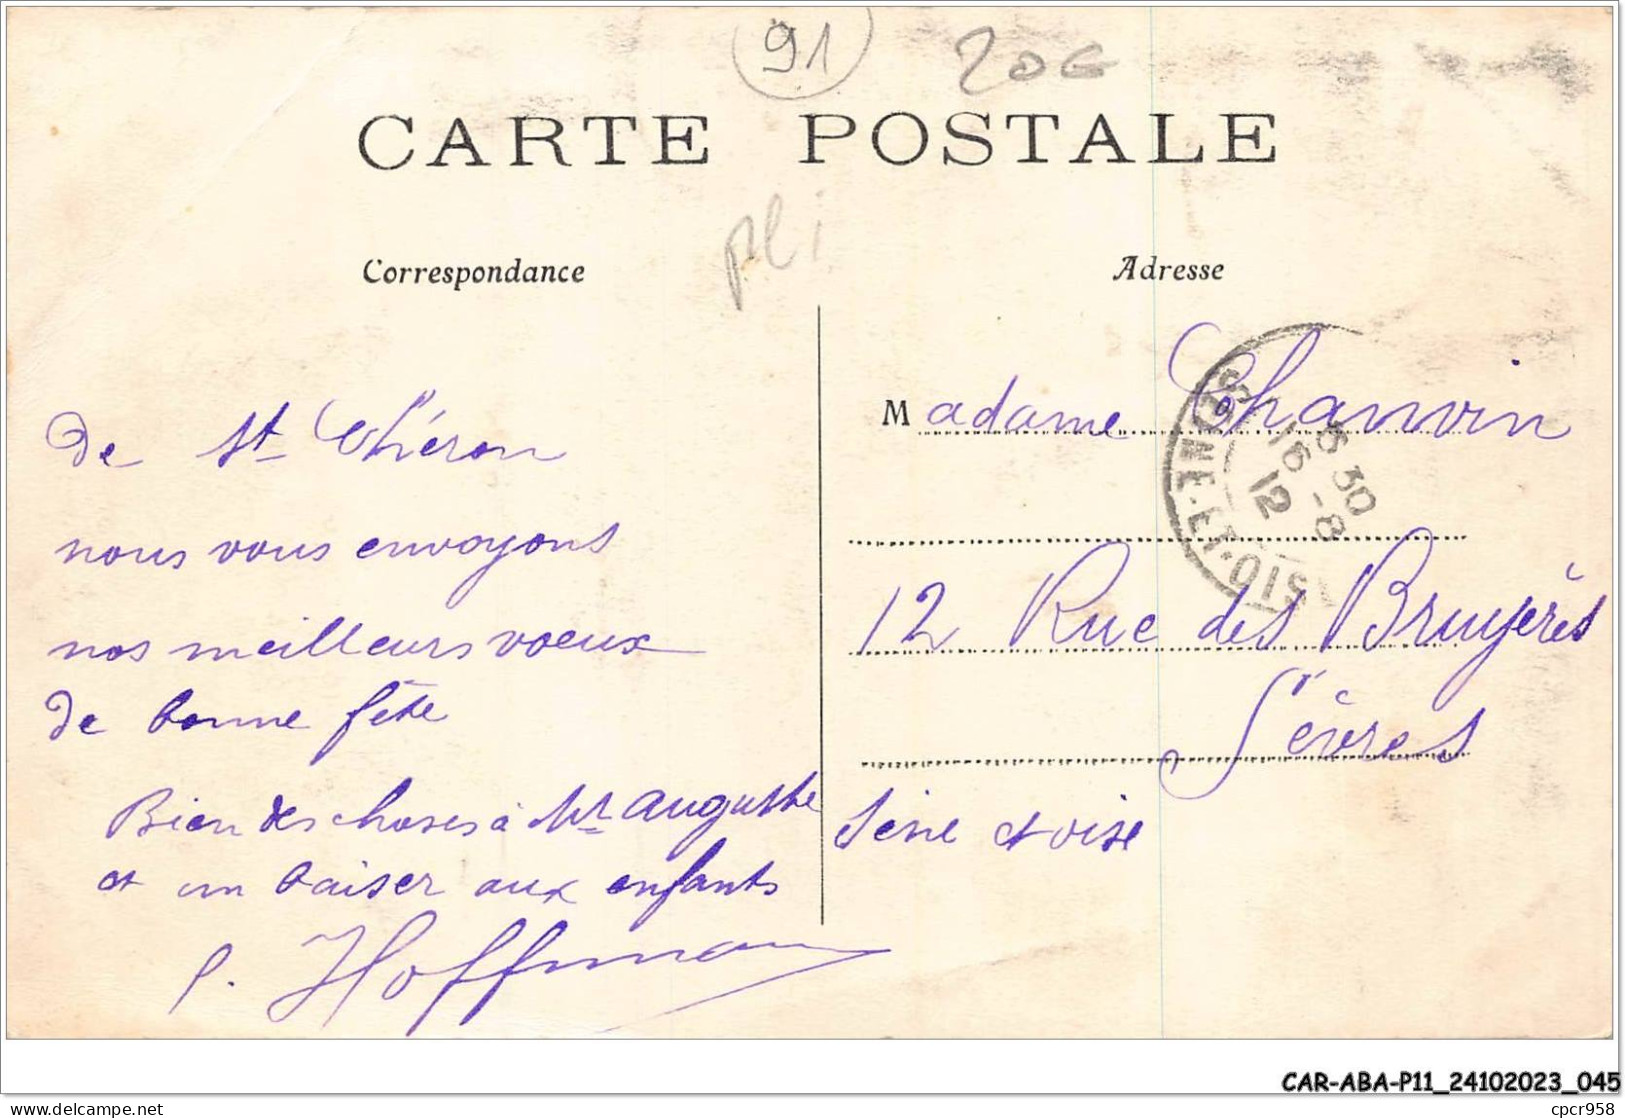 91
20€
CARTE POSTALE
pli
Correspondance
Adresse
de St Chéron
nous vous envoyons
nos meilleurs voeux
de bonne fête
Bien des choses à Mr auguste
et un baiser aux enfants
P. Hoffman
Madame Chanvin
12 Rue des Bruyères
Sèvres
Seine et oise
SEINE-ET-OISE
16 -8
12
CAR-ABA-P11_24102023_045
delcampe.net
cpcr958